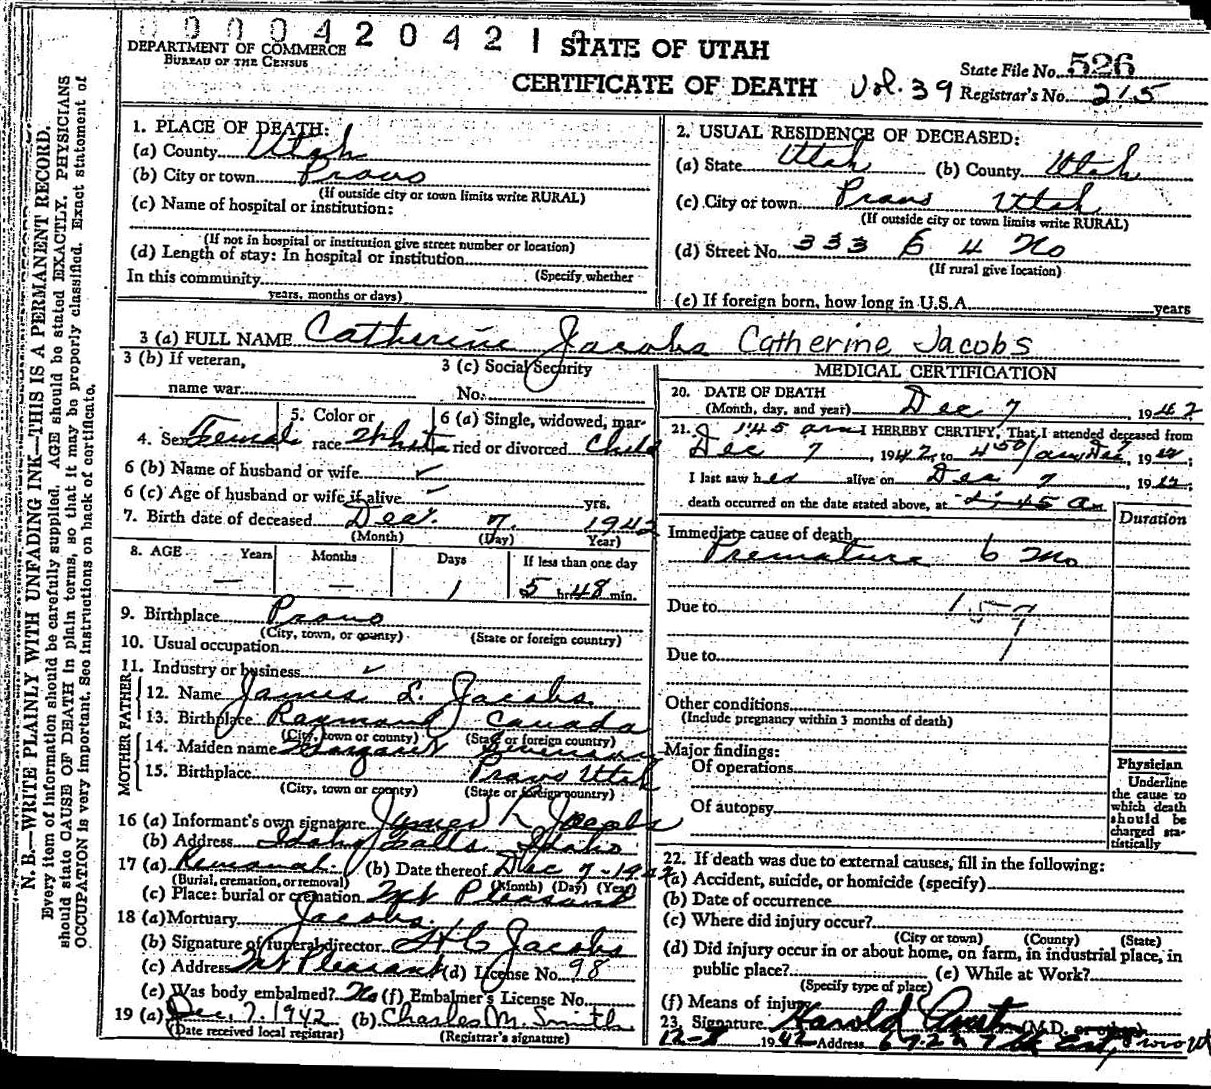 0 0 0 0 4 2 0 4 2 1
DEPARTMENT OF COMMERCE
BUREAU OF THE CENSUS
STATE OF UTAH
CERTIFICATE OF DEATH
Vol. 39
State File No. 526
Registrar's No. 215
N. B.—WRITE PLAINLY WITH UNFADING INK—THIS IS A PERMANENT RECORD.
Every item of information should be carefully supplied. AGE should be stated EXACTLY. PHYSICIANS
should state CAUSE OF DEATH in plain terms, so that it may be properly classified. Exact statement of
OCCUPATION is very important. See instructions on back of certificate.
1. PLACE OF DEATH:
(a) County Utah
(b) City or town Provo
(If outside city or town limits write RURAL)
(c) Name of hospital or institution:
(If not in hospital or institution give street number or location)
(d) Length of stay: In hospital or institution
(Specify whether
In this community
years, months or days)
2. USUAL RESIDENCE OF DECEASED:
(a) State Utah (b) County Utah
(c) City or town Provo Utah
(If outside city or town limits write RURAL)
(d) Street No. 333 E 4 No
(If rural give location)
(e) If foreign born, how long in U.S.A. years
3 (a) FULL NAME Catherine Jacobs Catherine Jacobs
3 (b) If veteran,
name war
3 (c) Social Security
No.
4. Sex Female
5. Color or
race White
6 (a) Single, widowed, mar-
ried or divorced Child
6 (b) Name of husband or wife ✓
6 (c) Age of husband or wife if alive ✓ yrs.
7. Birth date of deceased Dec. 7. 1942
(Month) (Day) (Year)
8. AGE Years Months Days If less than one day
— — 1 5 hr 48 min.
9. Birthplace Provo
(City, town, or county) (State or foreign country)
10. Usual occupation
11. Industry or business ✓
FATHER
12. Name James L. Jacobs
13. Birthplace Raymond Canada
(City, town or county) (State or foreign country)
MOTHER
14. Maiden name Margaret
15. Birthplace Provo Utah
(City, town or county) (State or foreign country)
16 (a) Informant's own signature James Jacobs
(b) Address Idaho Falls Idaho
17 (a) Removal (b) Date thereof Dec 7-1942
(Burial, cremation, or removal) (Month) (Day) (Year)
(c) Place: burial or cremation Mt Pleasant
18 (a) Mortuary Jacobs.
(b) Signature of funeral director H C Jacobs
(c) Address Mt Pleasant (d) License No. 98
(e) Was body embalmed? No (f) Embalmer's License No.
19 (a) Dec. 7. 1942 (b) Charles M. Smith
(Date received local registrar) (Registrar's signature)
MEDICAL CERTIFICATION
20. DATE OF DEATH
(Month, day, and year) Dec 7 1942
21. 145 am I HEREBY CERTIFY, That I attended deceased from
Dec 7, 1942, to Dec, 19
I last saw her alive on Dec 7 19
death occurred on the date stated above, at
Duration
Immediate cause of death
Premature 6 Mo
Due to 159
Due to
Other conditions
(Include pregnancy within 3 months of death)
Major findings:
Of operations
Of autopsy
Physician
Underline
the cause to
which death
should be
charged sta-
tistically
22. If death was due to external causes, fill in the following:
(a) Accident, suicide, or homicide (specify)
(b) Date of occurrence
(c) Where did injury occur?
(City or town) (County) (State)
(d) Did injury occur in or about home, on farm, in industrial place, in
public place? (e) While at Work?
(Specify type of place)
(f) Means of injury
23. Signature Harold (M.D. or other)
12-8 1942 Address East, Provo Ut